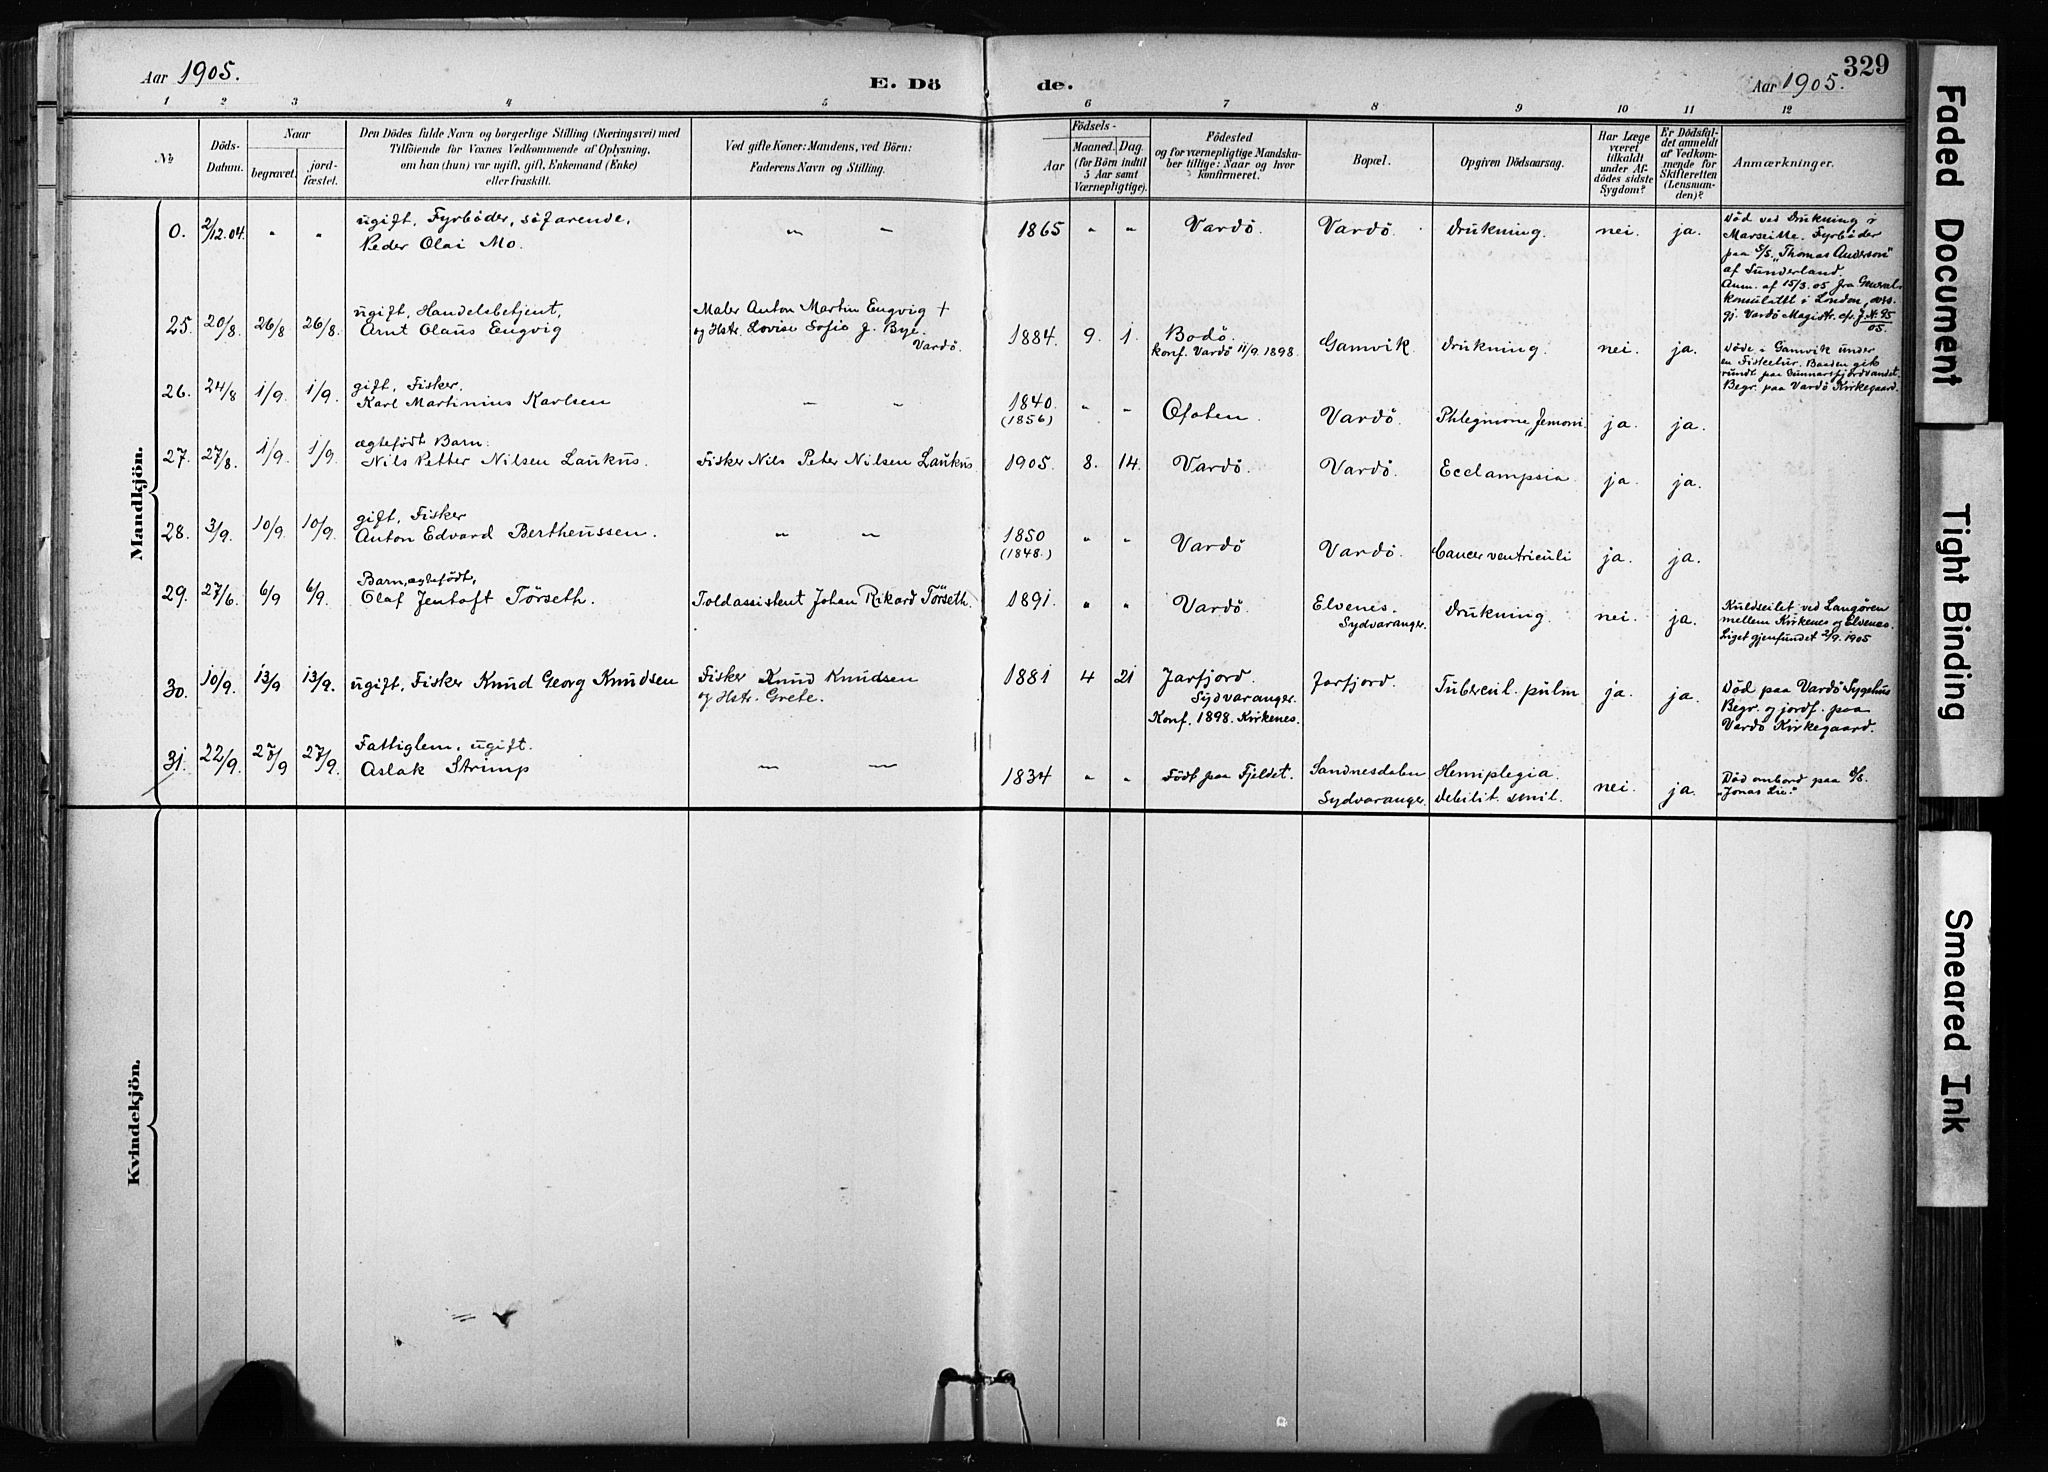 Aar 1905.
E. Dö
de.
Aar 1905.
329
1 2 3 4 5 6 7 8 9 10 11 12
No
Döds-
Datum.
Naar
begravet.
jord-
fæstet.
Den Dödes fulde Navn og borgerlige Stilling (Næringsvei) med
Tilföiende for Voxnes Vedkommende af Oplysning,
om han (hun) var ugift, gift, Enkemand (Enke)
eller fraskilt.
Ved gifte Koner: Mandens, ved Börn:
Faderens Navn og Stilling.
Födsels-
Aar
Maaned.
Dag.
(for Börn indtil
5 Aar samt
Værnepligtige).
Födested
og for værnepligtige Mandska-
ber tillige: Naar og hvor
konfirmeret.
Bopæl.
Opgiven Dödsaarsag.
Har Læge
været
tilkaldt
under Af-
dödes sidste
Sygdom?
Er Dödsfal-
det anmeldt
af Vedkom-
mende for
Skifteretten
(Lensman-
den)?
Anmærkninger.
Mandkjön.
0. 2/12.04. " " ugift, Fyrböder, söfarende,
Peder Olai Mo. " " 1865 " " Vardö. Vardö. Drukning. nei. ja.
Död ved Drukning i
Marseille. Fyrböder
paa S/S. "Thomas Anderson"
af Sunderland.
Anm. af 15/3.05 fra General-
konsulatet i London,
gj. Vardö Magistr. cfr. J.N. 95/05.
25. 20/8. 26/8 26/8. ugift, Handelsbetjent,
Arnt Olaus Engvig
Maler Anton Martin Engvig +
og Hstr. Lovise Sofie f. Bye.
Vardö.
1884. 9. 1. Bodö.
konf. Vardö 11/9.1898. Gamvik Drukning. nei. ja.
Döde i Gamvik under
en Fisketur. Baaden gik
rundt paa Gunnarsfjordvandet.
Begr. paa Vardö Kirkegaard.
26. 24/8 1/9. 1/9. gift, Fisker.
Karl Martinius Karlsen " " 1840.
(1856) " " Ofoten. Vardö. Phlegmone femoris ja. ja.
27. 27/8. 1/9. 1/9. ægtefödt Barn.
Nils Petter Nilsen Laukus. Fisker Nils Peter Nilsen Laukus 1905. 8. 14. Vardö. Vardö. Ecclampsia ja. ja.
28. 3/9. 10/9. 10/9. gift, Fisker
Anton Edvard Bertheussen. " " 1850
(1848.) " " Vardö Vardö. Cancer ventriculi ja. ja.
29. 27/6. 6/9 6/9. Barn, ægtefödt,
Olaf Jentoft Törseth. Toldassistent Johan Rikard Törseth. 1891. " " Vardö. Elvenes.
Sydvaranger. Drukning. nei. ja.
Kuldseilet ved Langören
mellem Kirkenes og Elvenes.
Liget gjenfundet 2/9. 1905
30. 10/9. 13/9 13/9. ugift, Fisker Knud Georg Knudsen
Fisker Knud Knudsen
og Hstr. Grete.
1881 4 21 Jarfjord.
Sydvaranger.
Konf. 1898. Kirkenes. Jarfjord. Tubercul. pulm ja. ja.
Död paa Vardö Sygehus
Begr. og jordf. paa
Vardö Kirkegaard.
31. 22/9. 27/9 27/9. Fattiglem, ugift.
Aslak Strimp " " 1834 " " Födt paa Fjeldet. Sandnesdalen
Sydvaranger. Hemiplegia.
Debilit. senil. nei. ja.
Död ombord paa S/S.
"Jonas Lie."
Kvindekjön.
Faded Document
Tight Binding
Smeared Ink